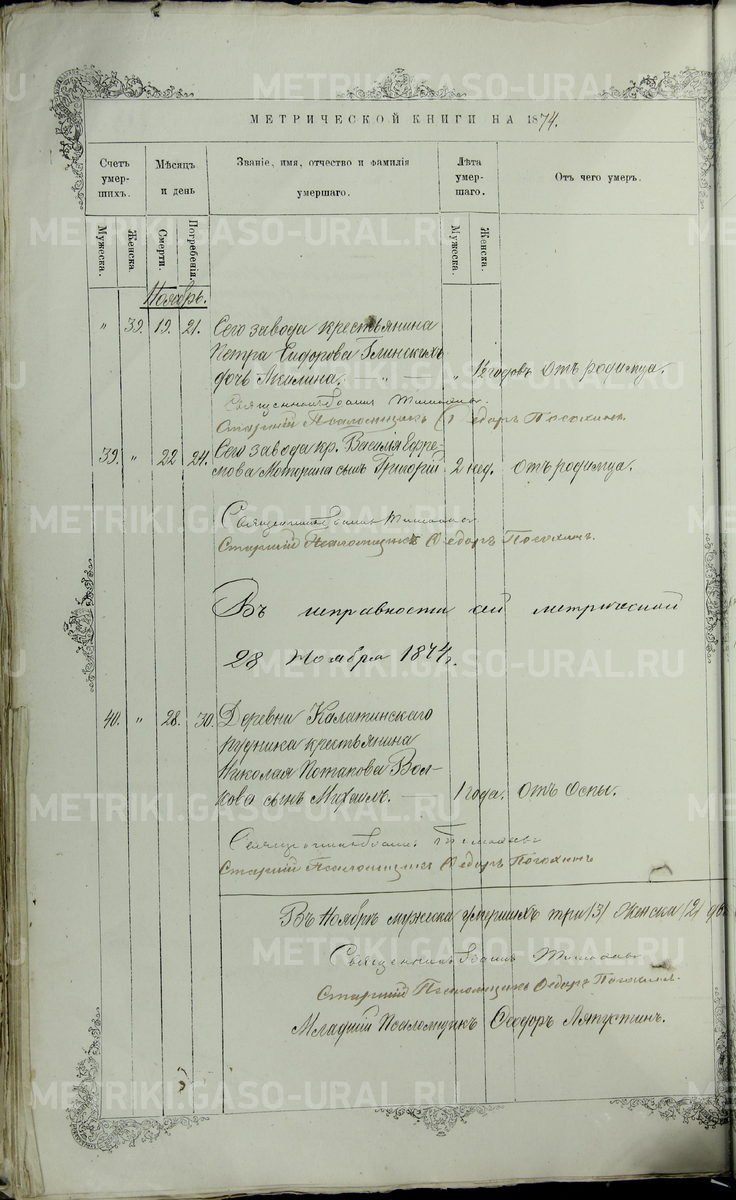 МЕТРИЧЕСКОЙ КНИГИ НА 1874.
Счетъ умер-шихъ.
Мѣсяцъ и день
Званіе, имя, отчество и фамилія умершаго.
Лѣта умер-шаго.
Отъ чего умеръ.
Мужеска.
Женска.
Смерти.
Погребенія.
Мужеска.
Женска.
Ноябрь.
" 39. 19. 21. Сего завода крестьянина
Петра Сидорова Глинскихъ
дочь Акилина. — " — " 1/2 годовъ Отъ родимца.
Священникъ Іоаннъ
Старшій Псаломщикъ Ѳедоръ Посохинъ.
39. " 22 24. Сего завода кр. Василія Ефре-
мова Моторина сынъ Григорій 2 нед. отъ родимца.
Священникъ Іоаннъ
Старшій Псаломщикъ Ѳедоръ Посохинъ.
Въ исправности сей метрической
28 Ноября 1874 г.
40. " 28. 30. Деревни Калатинскаго
рудника крестьянина
Николая Потапова Вол-
кова сынъ Михаилъ. — 1 года. отъ Оспы.
Священникъ Іоаннъ
Старшій Псаломщикъ Ѳедоръ Посохинъ
Въ Ноябрѣ мужеска умершихъ три /3/ Женска /2/ двѣ
Священникъ Іоаннъ
Старшій Псаломщикъ Ѳедоръ Посохинъ.
Младшій Псаломщикъ Ѳеодоръ Ляпустинъ.
METRIKI.GASO-URAL.RU